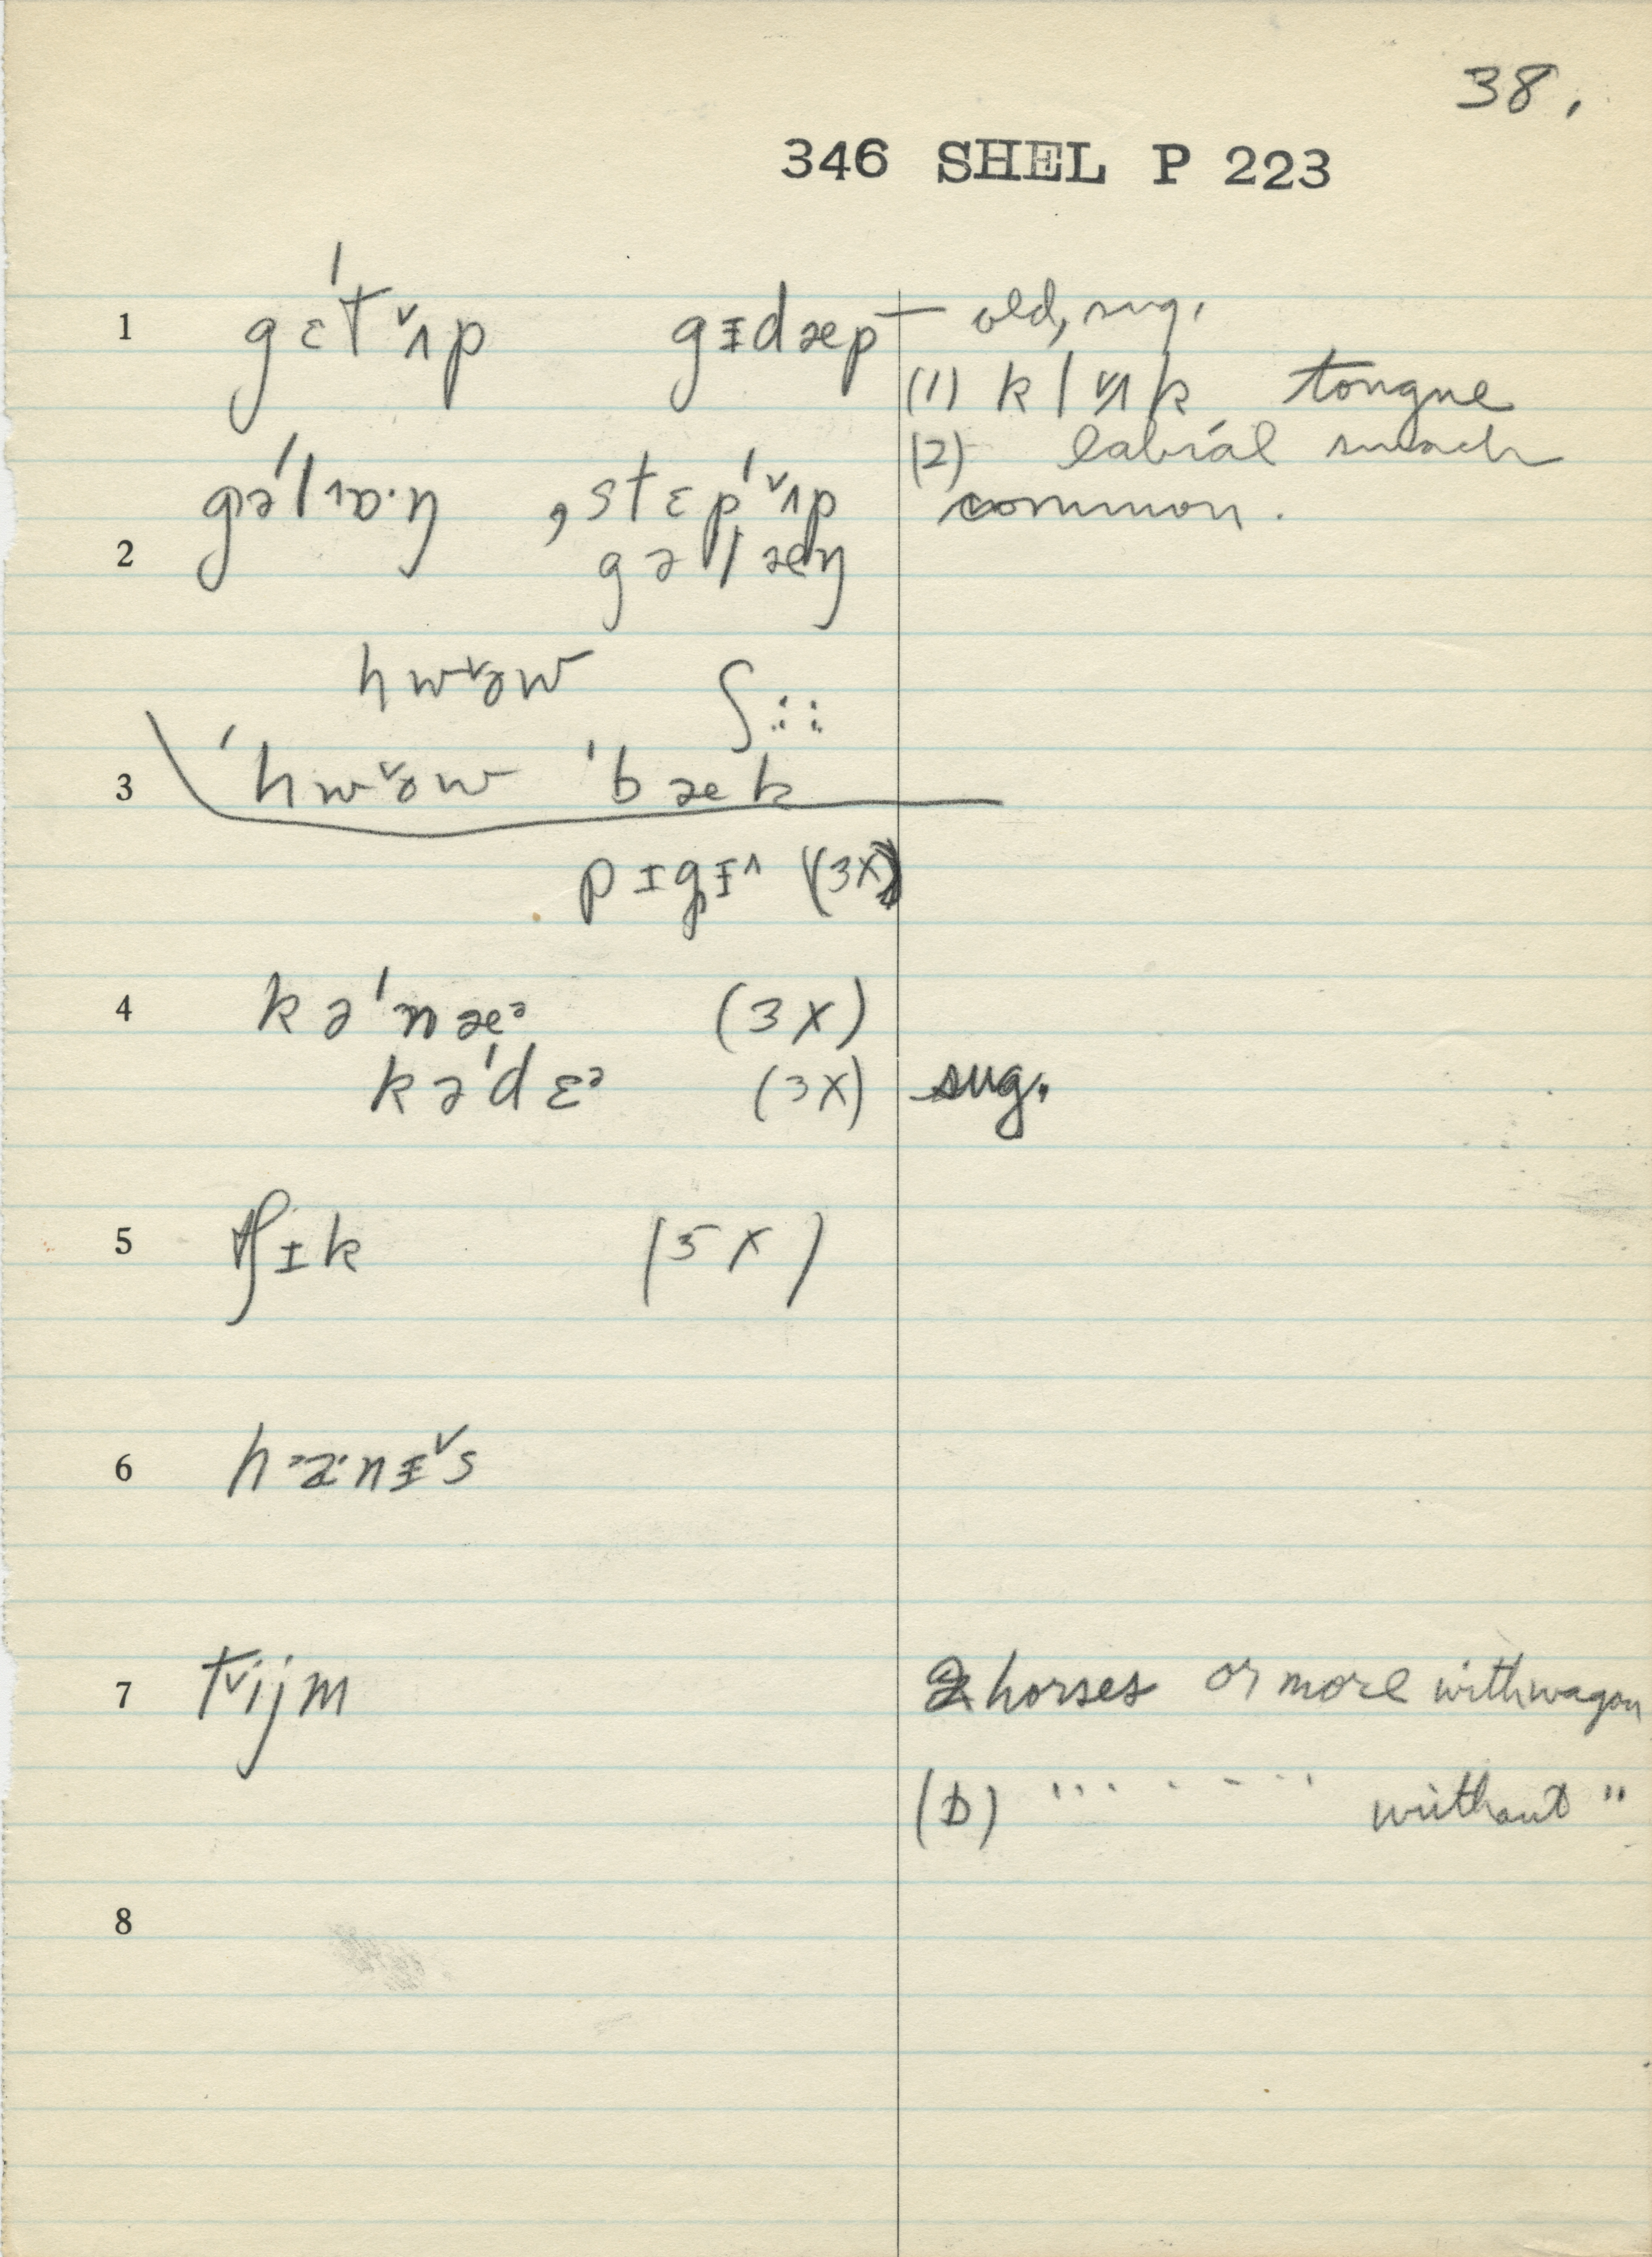 38.
346 SHEL P 223
1 gɛˈt ˅ʌp gɪdæp — old, sug.
(1) kl˅ʌk tongue
(2) labial smack
common.
ˌstɛpˈ˅ʌp
2 gəlæŋ
hw˅ɔw ʃ::
3 ˈhw˅ɔw ˈbæk
pɪgɪ^ (3X)
4 kəˈnæᵊ (3X)
kəˈdɛᵊ (3X) sug.
5 tʃɪk (5X)
6
7 t˅ijm 2 horses or more with wagon
(b) " " " " " " without "
8